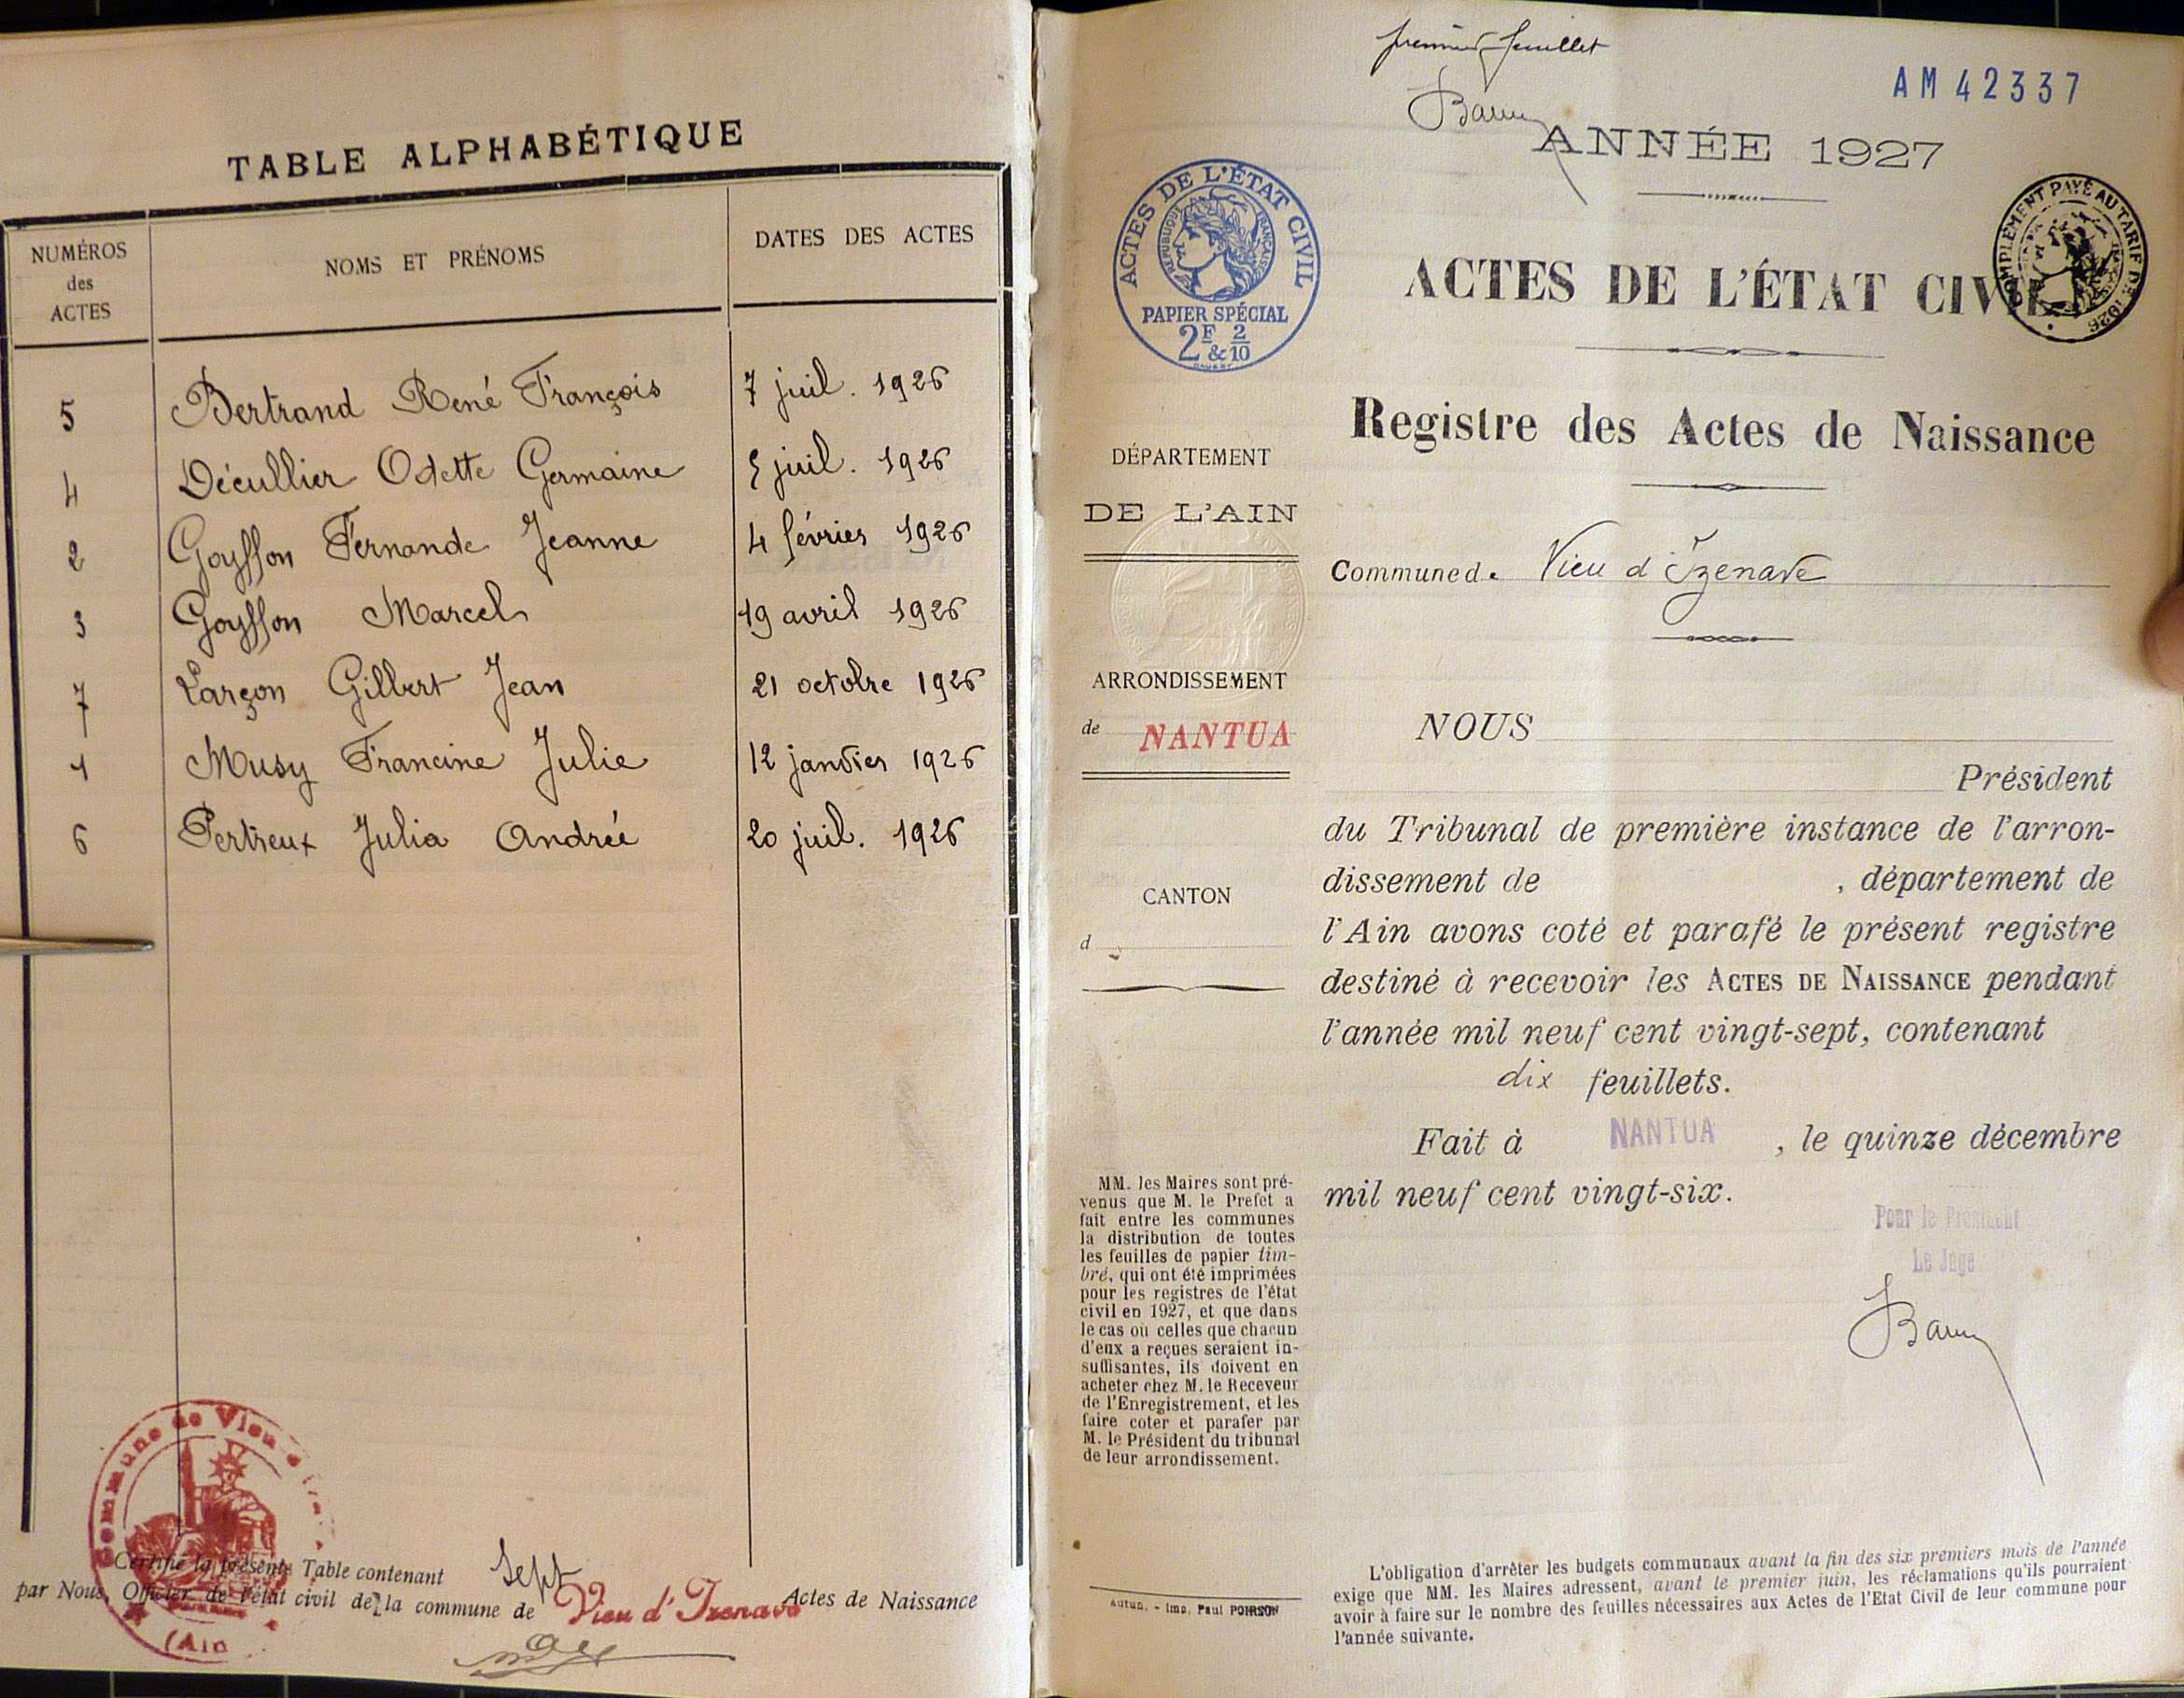 TABLE ALPHABÉTIQUE
NUMÉROS des ACTES
NOMS ET PRÉNOMS
DATES DES ACTES
5 Bertrand René François 7 juil. 1926
4 Décullier Odette Germaine 5 juil. 1926
2 Goyffon Fernande Jeanne 4 février 1926
3 Goyffon Marcel 19 avril 1926
7 Larçon Gilbert Jean 21 octobre 1926
1 Musy Francine Julie 12 janvier 1926
6 Pertreux Julia Andrée 20 juil. 1926
Commune de Vieu d'
(Ain
Certifié la présente Table contenant sept Actes de Naissance
par Nous, Officier de l'état civil de la commune de Vieu d'Izenave
premier feuillet
AM 42337
ANNÉE 1927
ACTES DE L'ÉTAT CIVIL
RÉPUBLIQUE FRANÇAISE
PAPIER SPÉCIAL
2F & 2/10
COMPLÉMENT PAYÉ AU TARIF DE 1926
ACTES DE L'ÉTAT CIVIL
Registre des Actes de Naissance
DÉPARTEMENT
DE L'AIN
Commune de Vieu d'Izenave
ARRONDISSEMENT
de NANTUA
CANTON
d
NOUS
Président
du Tribunal de première instance de l'arron-
dissement de , département de
l'Ain avons coté et parafé le présent registre
destiné à recevoir les ACTES DE NAISSANCE pendant
l'année mil neuf cent vingt-sept, contenant
dix feuillets.
Fait à NANTUA , le quinze décembre
mil neuf cent vingt-six.
Pour le Président
Le Juge
MM. les Maires sont pré-
venus que M. le Préfet a
fait entre les communes
la distribution de toutes
les feuilles de papier tim-
bré, qui ont été imprimées
pour les registres de l'état
civil en 1927, et que dans
le cas où celles que chacun
d'eux a reçues seraient in-
suffisantes, ils doivent en
acheter chez M. le Receveur
de l'Enregistrement, et les
faire coter et parafer par
M. le Président du tribunal
de leur arrondissement.
Autun. - Imp. Paul POIRSON
L'obligation d'arrêter les budgets communaux avant la fin des six premiers mois de l'année
exige que MM. les Maires adressent, avant le premier juin, les réclamations qu'ils pourraient
avoir à faire sur le nombre des feuilles nécessaires aux Actes de l'Etat Civil de leur commune pour
l'année suivante.